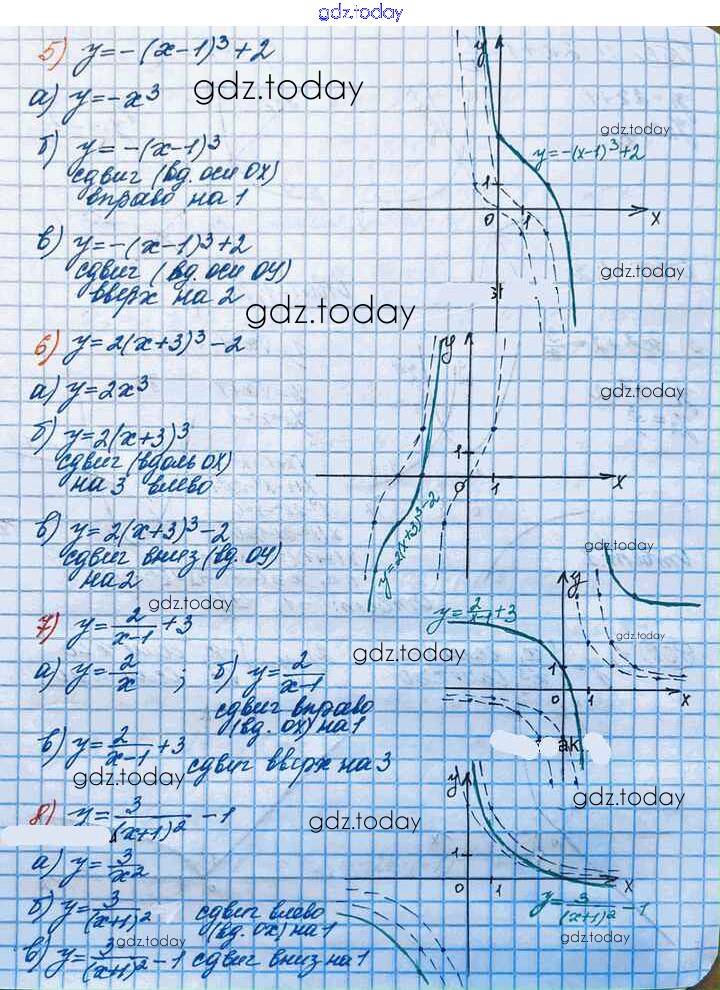 gdz.today
5) y=-(x-1)³+2
а) y=-x³
gdz.today
б) y=-(x-1)³
сдвиг (вд. оси OX)
вправо на 1
в) y=-(x-1)³+2
сдвиг (вд. оси OY)
вверх на 2
y
gdz.today
y=-(x-1)³+2
1
0
1
x
gdz.today
gdz.today
6) y=2(x+3)³-2
а) y=2x³
б) y=2(x+3)³
сдвиг (вдоль OX)
на 3 влево
в) y=2(x+3)³-2
сдвиг вниз (вд. OY)
на 2
y
gdz.today
1
0
1
x
y=2(x+3)³-2
gdz.today
gdz.today
7) y=2/(x-1)+3
а) y=2/x ; б) y=2/(x-1)
сдвиг вправо
(вд. OX) на 1
в) y=2/(x-1)+3
сдвиг вверх на 3
gdz.today
y=2/(x-1)+3
gdz.today
y
gdz.today
1
0
1
x
ak
gdz.today
8) y=3/(x+1)²-1
а) y=3/x²
б) y=3/(x+1)² сдвиг влево
(вд. OX) на 1
в) y=3/(x+1)²-1 сдвиг вниз на 1
gdz.today
gdz.today
y
1
0
1
x
y=3/(x+1)²-1
gdz.today